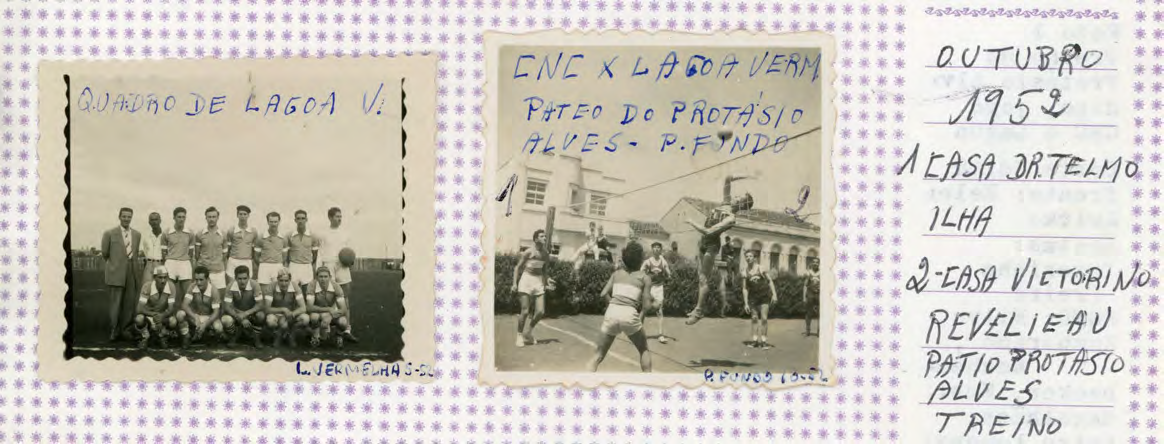 QUADRO DE LAGOA V.
L. VERMELHA 5-52
CNC X LAGOA VERM
PATEO DO PROTÁSIO
ALVES - P. FUNDO
1
2
P. FUNDO 10-52
OUTUBRO
1952
1 CASA DR. TELMO
ILHA
2-CASA VICTORINO
REVELIEAU
PATIO PROTÁSIO
ALVES
TREINO